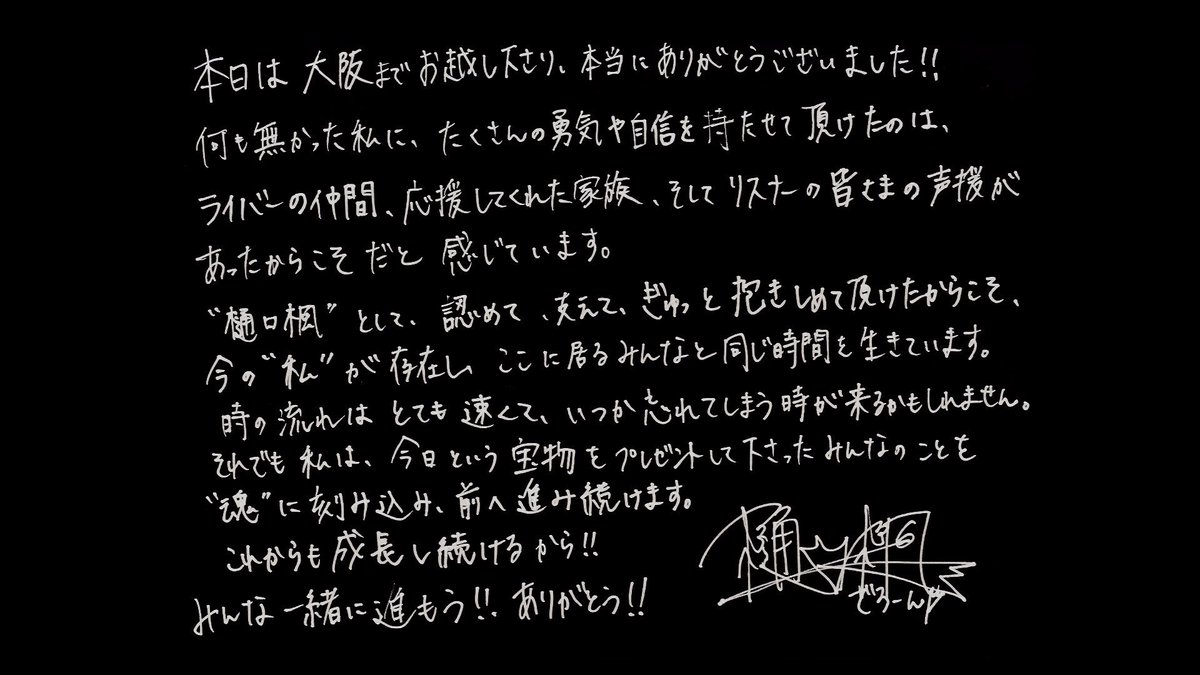 本日は大阪までお越し下さり、本当にありがとうございました!!
何も無かった私に、たくさんの勇気や自信を持たせて頂けたのは、
ライバーの仲間、応援してくれた家族、そしてリスナーの皆さまの声援が
あったからこそだと感じています。
"樋口楓"として、認めて、支えて、ぎゅっと抱きしめて頂けたからこそ、
今の"私"が存在し、ここに居るみんなと同じ時間を生きています。
時の流れはとても速くて、いつか忘れてしまう時が来るかもしれません。
それでも私は、今日という宝物をプレゼントして下さったみんなのことを
"魂"に刻み込み、前へ進み続けます。
これからも成長し続けるから!!
みんな一緒に進もう!! ありがとう!!
樋口楓
でろーん